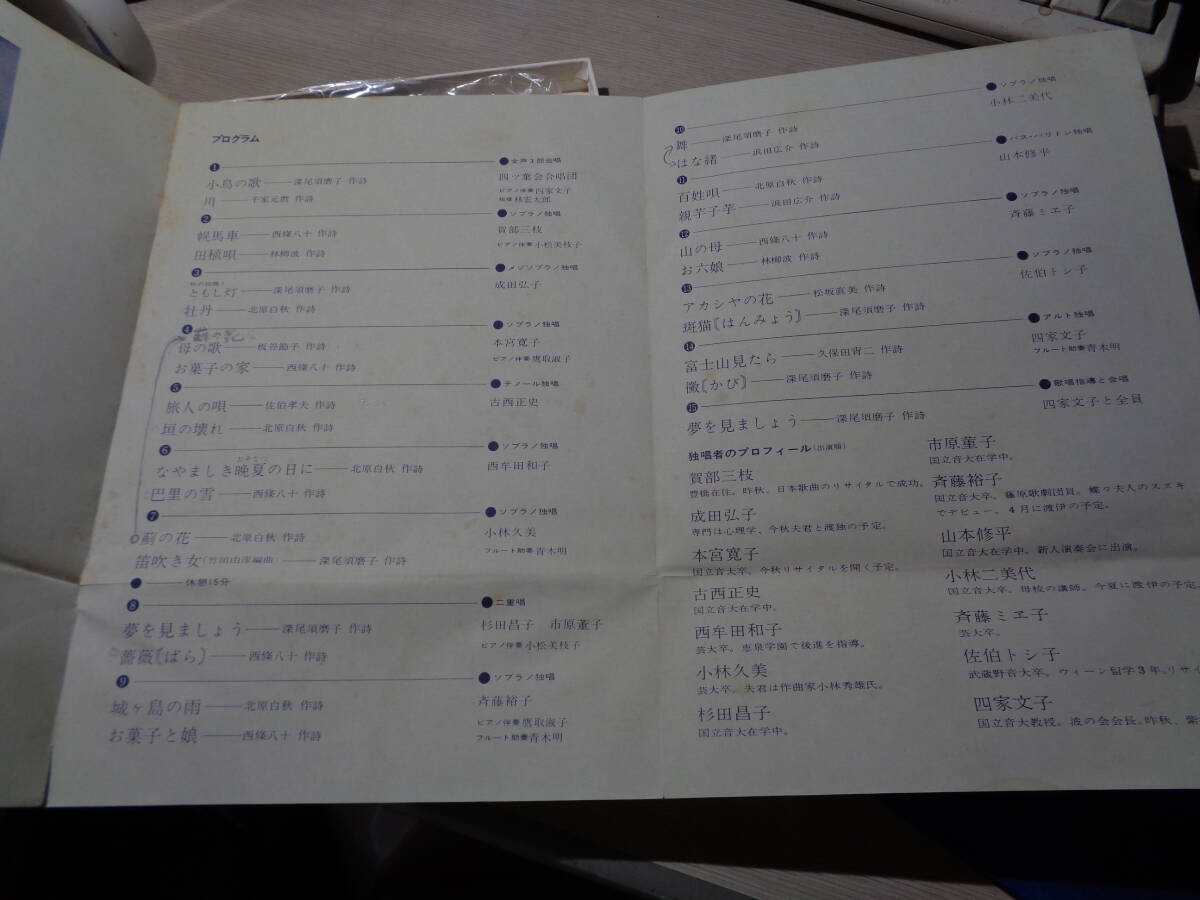 プログラム
❶ ●女声3部合唱
小鳥の歌——深尾須磨子 作詩 四ツ葉会合唱団
川——千家元麿 作詩 ピアノ伴奏 四家文子
指揮 林宏太郎
❷ ●ソプラノ独唱
幌馬車——西條八十 作詩 賀部三枝
田植唄——林柳波 作詩 ピアノ伴奏 小松美枝子
❸ ●メゾソプラノ独唱
ともし灯——深尾須磨子 作詩 成田弘子
牡丹——北原白秋 作詩
❹ ●ソプラノ独唱
母の歌——板谷節子 作詩 本宮寛子
お菓子の家——西條八十 作詩 ピアノ伴奏 鷹取淑子
❺ ●テノール独唱
旅人の唄——佐伯孝夫 作詩 古西正史
垣の壊れ——北原白秋 作詩
❻ ●ソプラノ独唱
おそなつ
なやましき晩夏の日に——北原白秋 作詩 西牟田和子
巴里の雪——西條八十 作詩
❼ ●ソプラノ独唱
薊の花——北原白秋 作詩 小林久美
笛吹き女(竹田由彦編曲)——深尾須磨子 作詩 フルート助奏 青木明
●——休憩15分
❽ ●二重唱
夢を見ましょう——深尾須磨子 作詩 杉田昌子 市原菫子
薔薇〔ばら〕——西條八十 作詩 ピアノ伴奏 小松美枝子
❾ ●ソプラノ独唱
城ヶ島の雨——北原白秋 作詩 斉藤裕子
お菓子と娘——西條八十 作詩 ピアノ伴奏 鷹取淑子
フルート助奏 青木明
❿ ●ソプラノ独唱
舞——深尾須磨子 作詩 小林二美代
はな緒——浜田広介 作詩
⓫ ●バス・バリトン独唱
百姓唄——北原白秋 作詩 山本修平
親芋子芋——浜田広介 作詩
⓬ ●ソプラノ独唱
山の母——西條八十 作詩 斉藤ミエ子
お六娘——林柳波 作詩
⓭ ●ソプラノ独唱
アカシヤの花——松坂直美 作詩 佐伯トシ子
斑猫〔はんみょう〕——深尾須磨子 作詩
⓮ ●アルト独唱
富士山見たら——久保田宵二 作詩 四家文子
黴〔かび〕——深尾須磨子 作詩 フルート助奏 青木明
⓯ ●歌唱指導と合唱
夢を見ましょう——深尾須磨子 作詩 四家文子と全員
独唱者のプロフィール(出演順)
賀部三枝
豊橋在住。昨秋、日本歌曲のリサイタルで成功。
成田弘子
専門は心理学、今秋夫君と渡独の予定。
本宮寛子
国立音大卒。今秋リサイタルを開く予定。
古西正史
国立音大在学中。
西牟田和子
芸大卒。恵泉学園で後進を指導。
小林久美
芸大卒。夫君は作曲家小林秀雄氏。
杉田昌子
国立音大在学中。
市原菫子
国立音大在学中。
斉藤裕子
国立音大卒。藤原歌劇団員。蝶々夫人のスズキ
でデビュー。4月に渡伊の予定。
山本修平
国立音大在学中、新人演奏会に出演。
小林二美代
国立音大卒、母校の講師。今夏に渡伊の予定。
斉藤ミエ子
芸大卒。
佐伯トシ子
武蔵野音大卒。ウィーン留学3年。リサイ
四家文子
国立音大教授。波の会会長。昨秋、紫